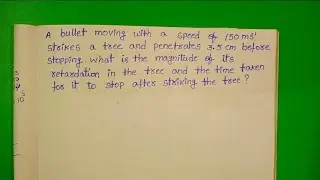 A bullet moving with a speed of 150 ms¹
strikes a tree and penetrates 3.5 cm before
stopping. what is the magnitude of its
retardation in the tree and the time taken
for it to stop after striking the tree?